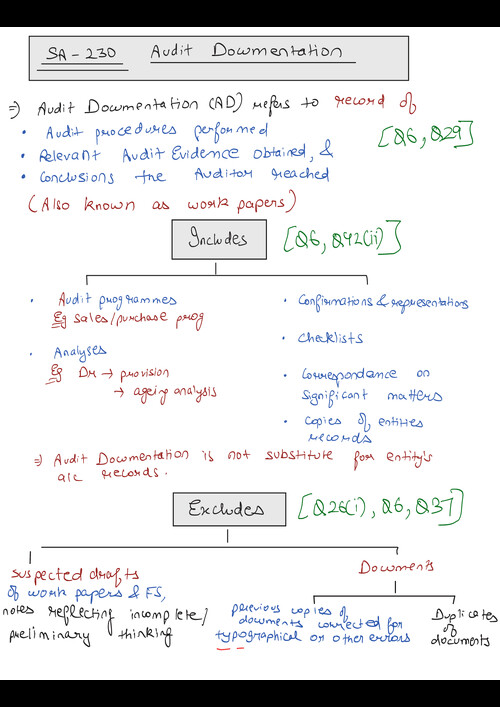 SA - 230 Audit Documentation
⇒ Audit Documentation (AD) refers to record of
• Audit procedures performed
• Relevant Audit Evidence obtained, &
• Conclusions the Auditor reached
[Q6, Q29]
(Also known as work papers)
Includes
[Q6, Q42(ii)]
• Audit programmes
Eg sales/purchase prog
• Analyses
Eg Dr → provision
→ ageing analysis
• Confirmations & representations
• Checklists
• Correspondance on
significant matters
• Copies of entities
records
⇒ Audit Documentation is not substitute for entity's
a/c records.
Excludes
[Q26(i), Q6, Q37]
Suspected drafts
of work papers & FS,
notes reflecting incomplete/
preliminary thinking
Documents
previous copies of
documents corrected for
typographical or other errors
Duplicates
of
documents